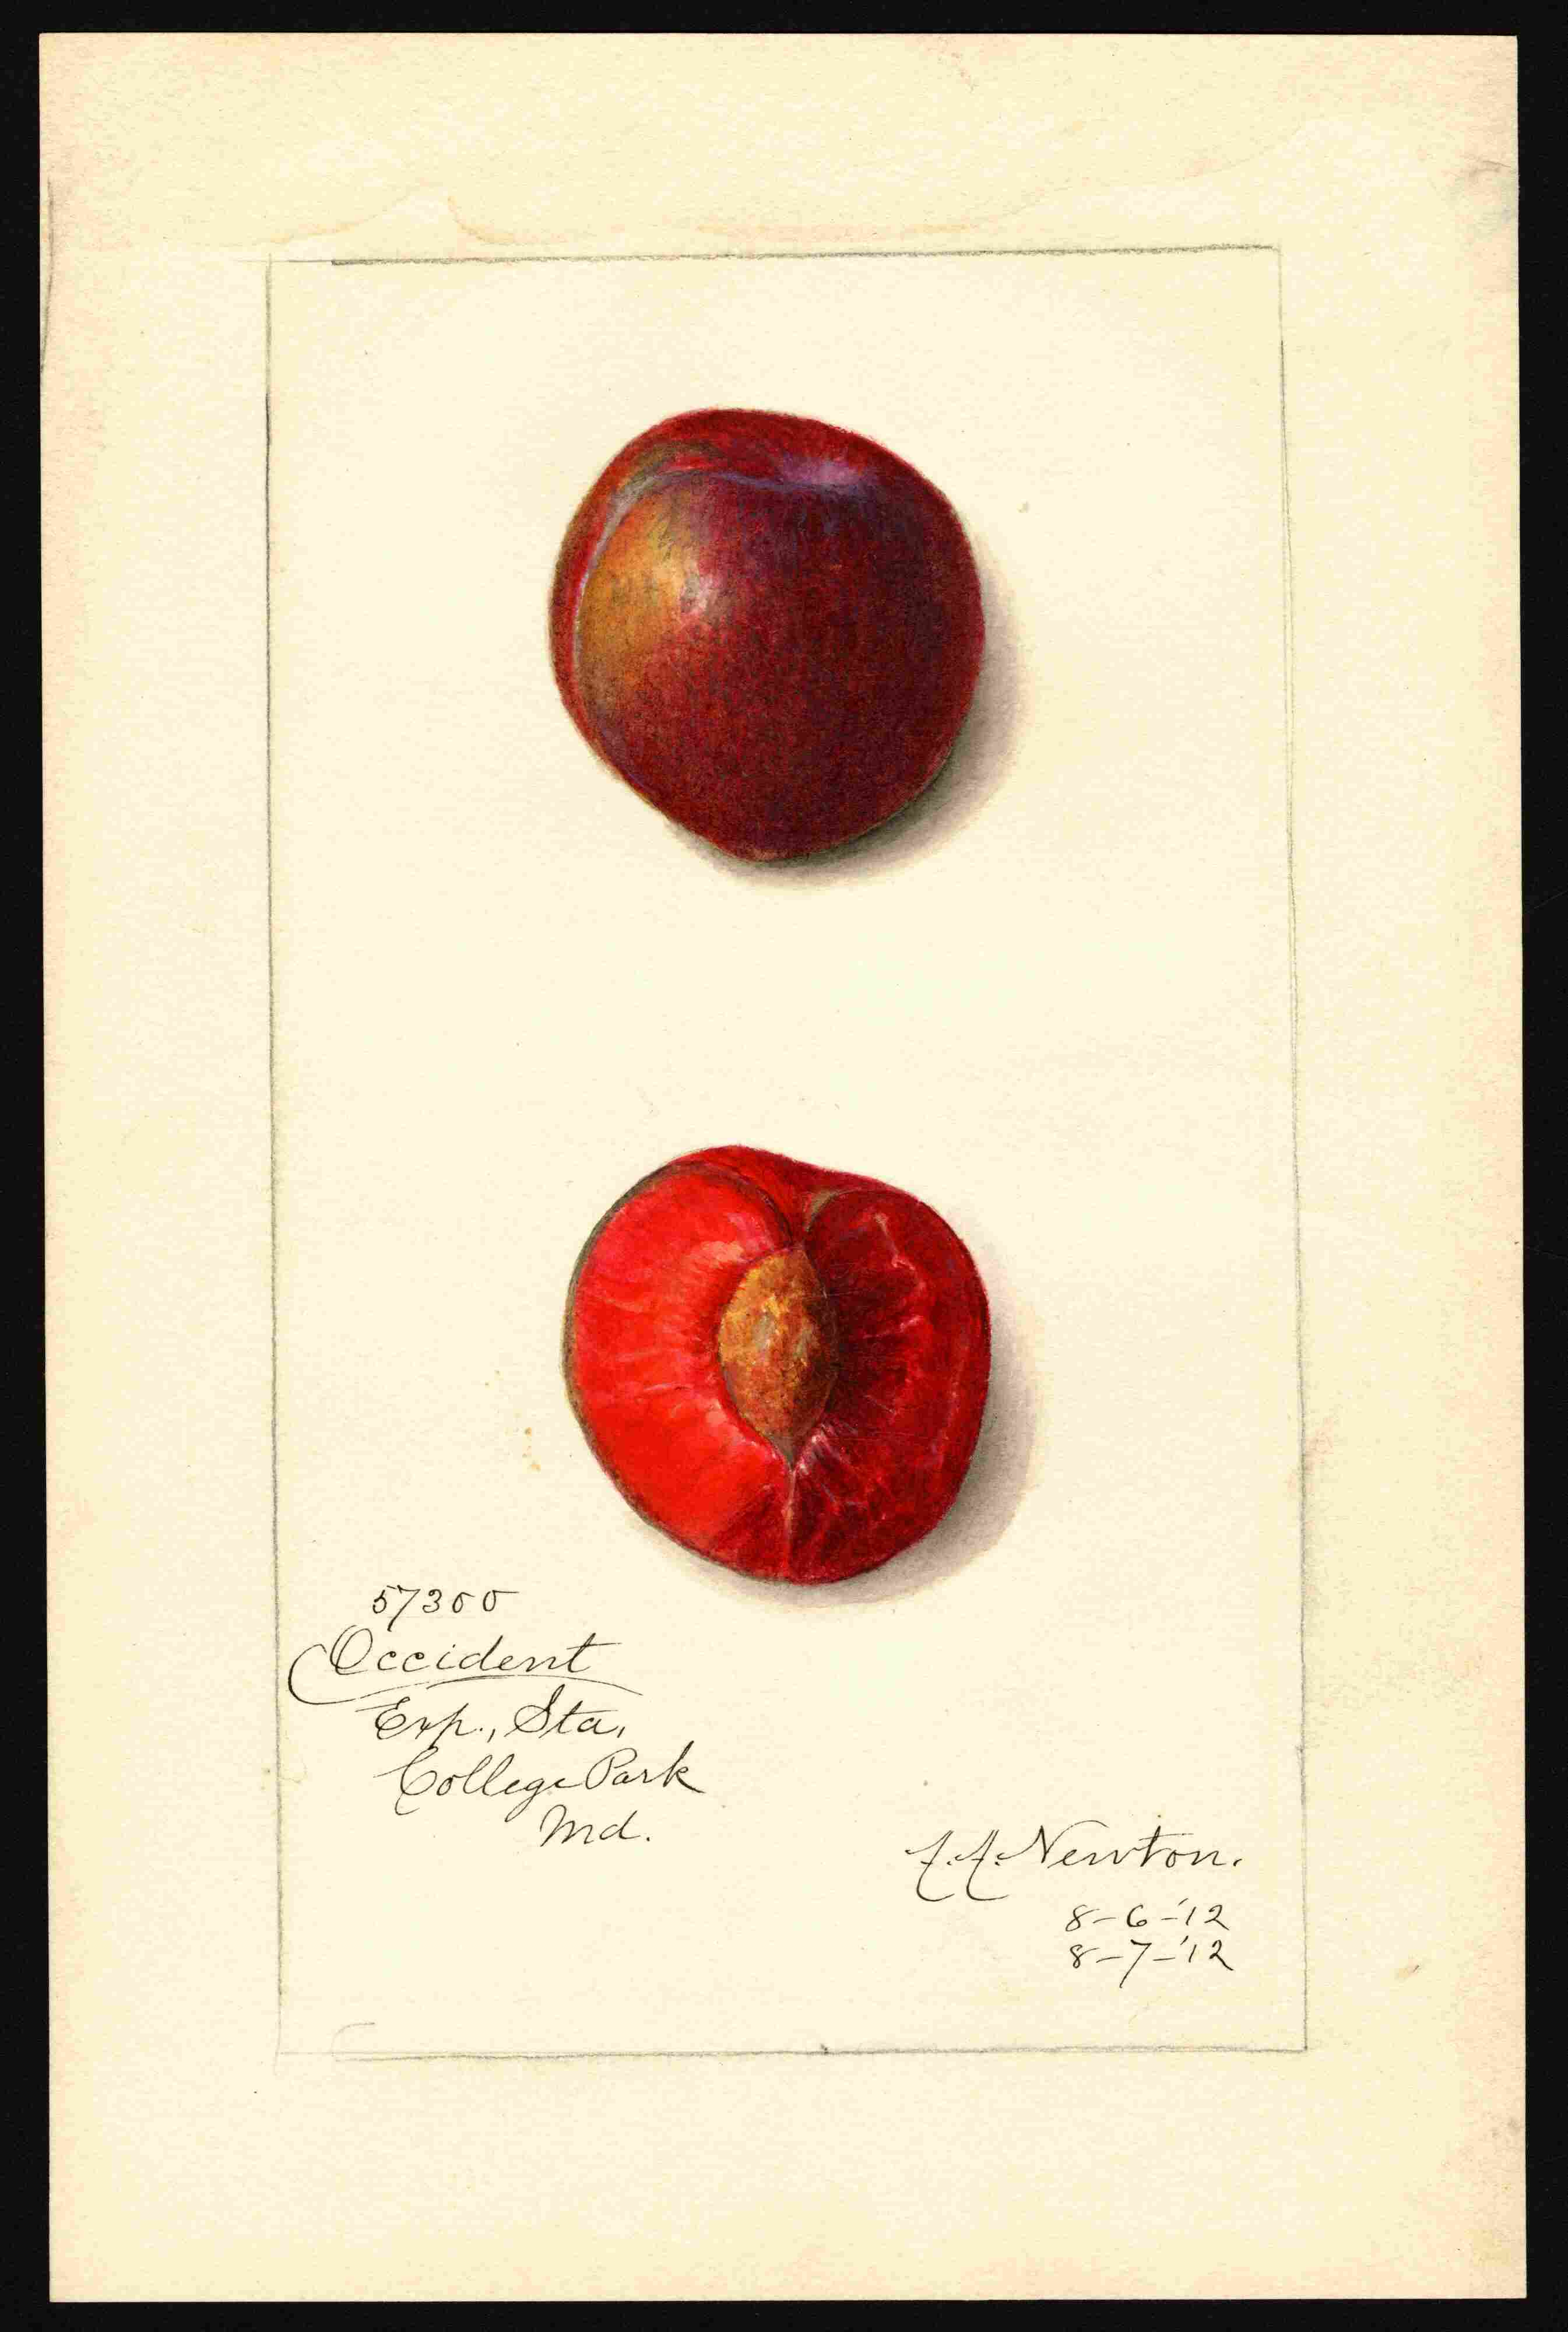 57300
Occident
Exp., Sta.
College Park
Md.
A.A. Newton.
8-6-'12
8-7-'12